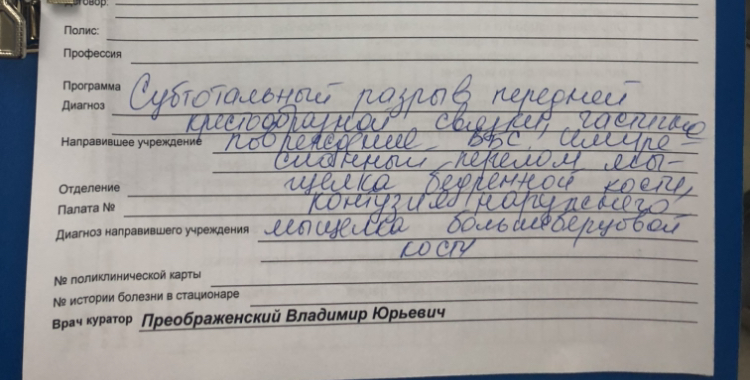 Договор:
Полис:
Профессия
Программа
Диагноз Субтотальный разрыв передней
крестообразной связки, частично
Направившее учреждение повреждение БКС, импре-
ссионный перелом мы-
Отделение щелка бедренной кости,
Палата № контузия наружного
Диагноз направившего учреждения мыщелка большеберцовой
кости
№ поликлинической карты
№ истории болезни в стационаре
Врач куратор Преображенский Владимир Юрьевич